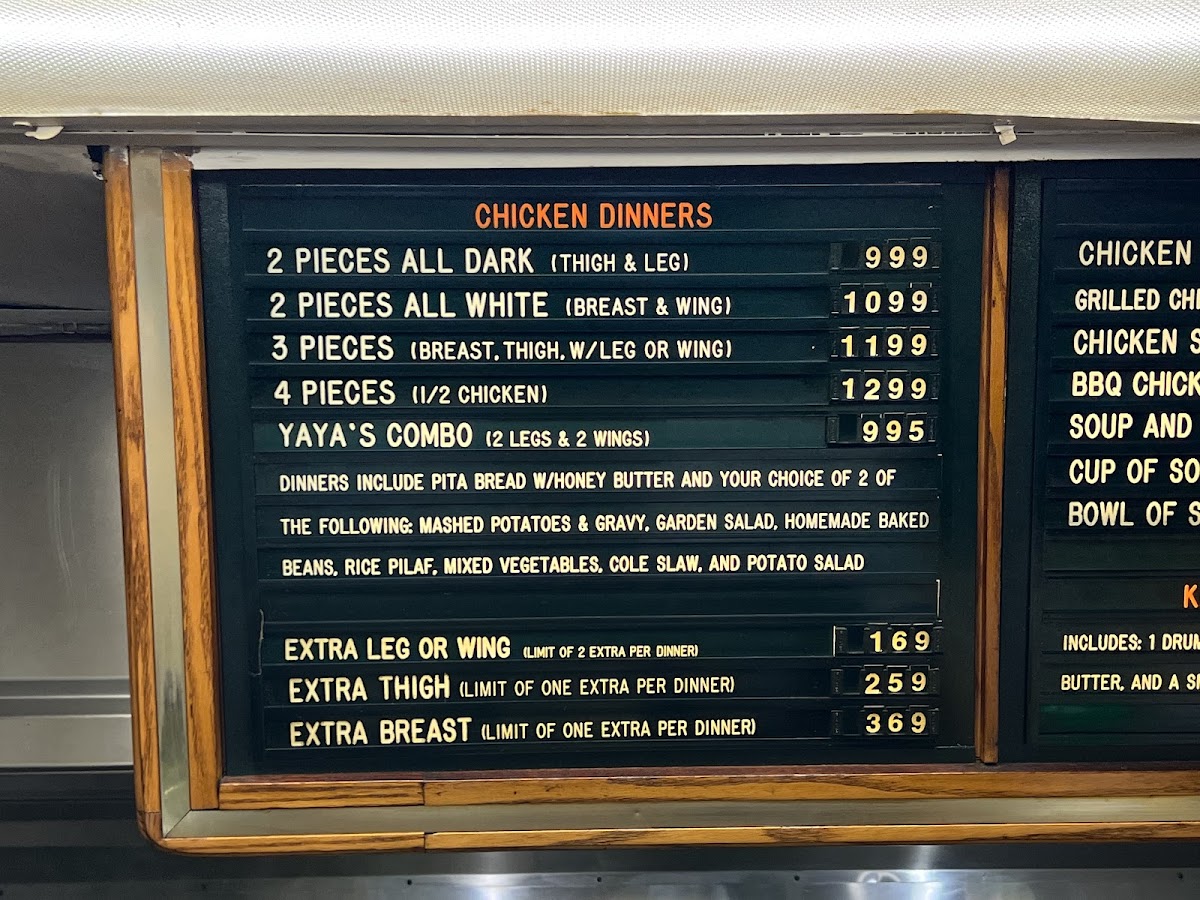 CHICKEN DINNERS
2 PIECES ALL DARK (THIGH & LEG) 999
2 PIECES ALL WHITE (BREAST & WING) 1099
3 PIECES (BREAST, THIGH, W/LEG OR WING) 1199
4 PIECES (1/2 CHICKEN) 1299
YAYA'S COMBO (2 LEGS & 2 WINGS) 995
DINNERS INCLUDE PITA BREAD W/HONEY BUTTER AND YOUR CHOICE OF 2 OF
THE FOLLOWING: MASHED POTATOES & GRAVY, GARDEN SALAD, HOMEMADE BAKED
BEANS, RICE PILAF, MIXED VEGETABLES, COLE SLAW, AND POTATO SALAD
EXTRA LEG OR WING (LIMIT OF 2 EXTRA PER DINNER) 169
EXTRA THIGH (LIMIT OF ONE EXTRA PER DINNER) 259
EXTRA BREAST (LIMIT OF ONE EXTRA PER DINNER) 369
CHICKEN
GRILLED
CHICKEN
BBQ
SOUP AND
CUP OF
BOWL OF
INCLUDES: 1
BUTTER, AND A